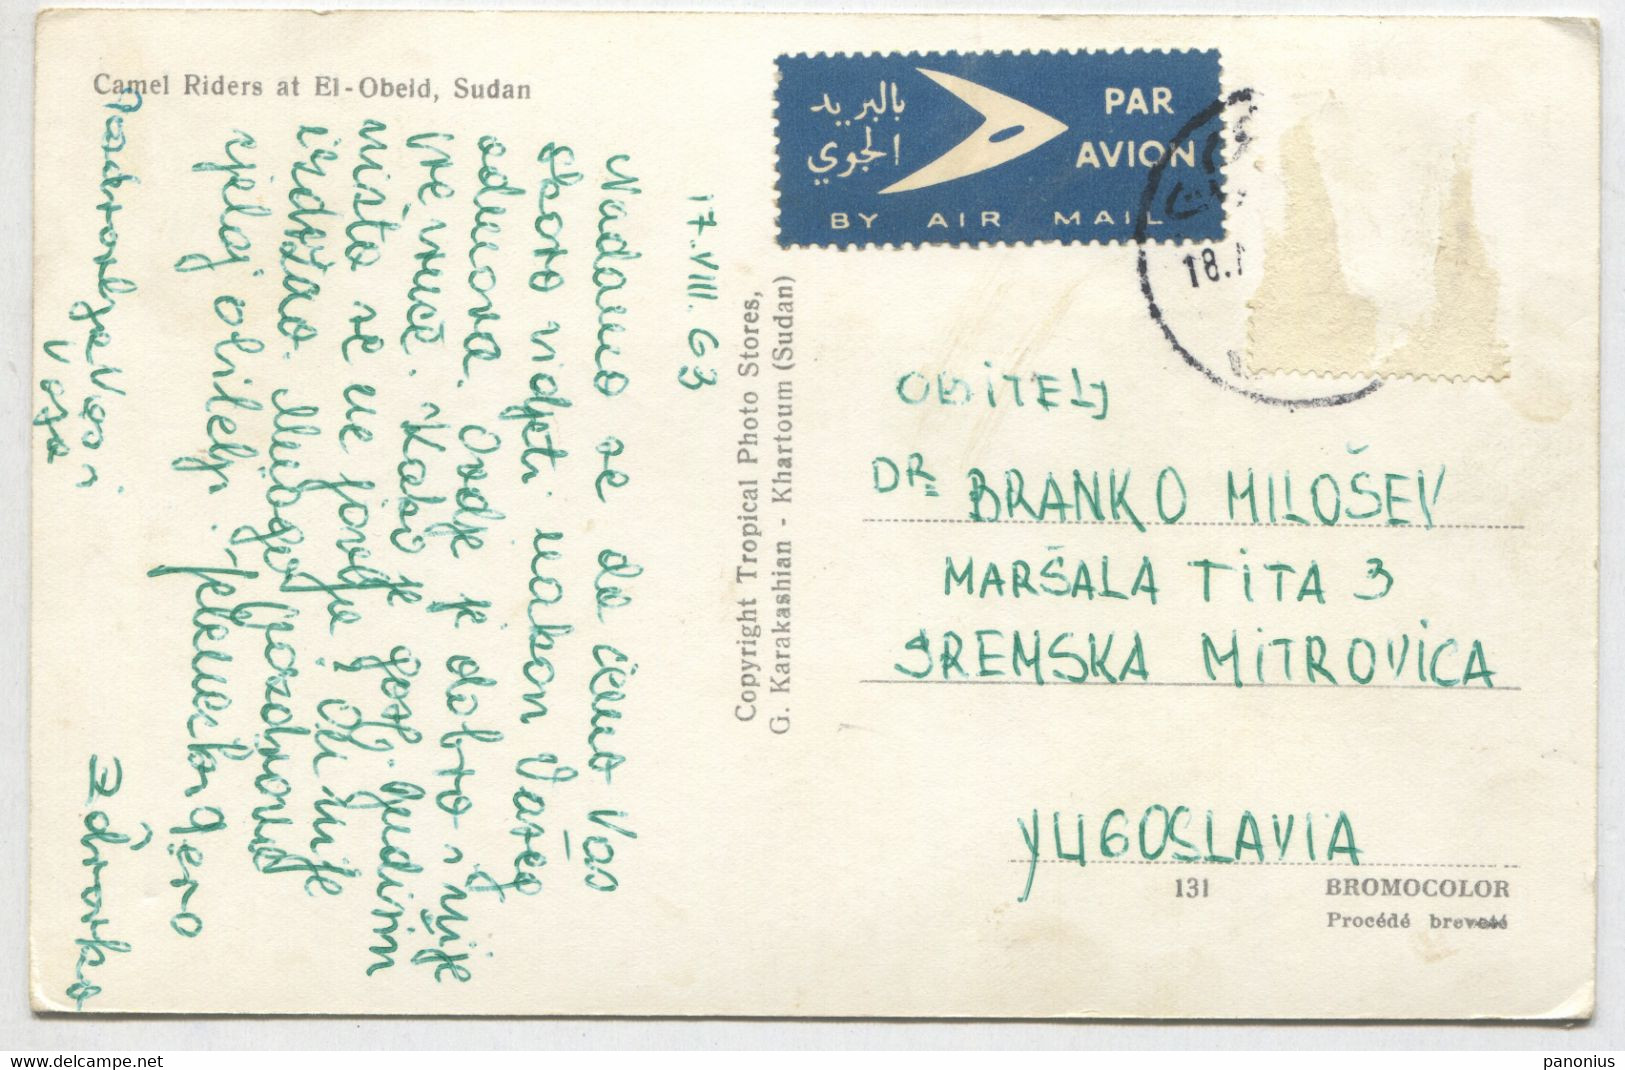 Camel Riders at El-Obeid, Sudan
بالبريد
الجوي
PAR
AVION
BY AIR MAIL
18.
17.VIII.63
Nadamo se da ćemo Vas
skoro vidjeti nakon Vašeg
odmora. Ovdje je dobro i nije
vruće. Kako je gosp. Ljudim
ništa se ne javlja! Ili nije
izdržao. Mnogo pozdrava
cijeloj obitelji.
Pozdravlja Vas i
Vaša
Zdravka
Copyright Tropical Photo Stores,
G. Karakashian - Khartoum (Sudan)
OBITELJ
DR BRANKO MILOŠEV
MARŠALA TITA 3
SREMSKA MITROVICA
YUGOSLAVIA
131
BROMOCOLOR
Procédé breveté
delcampe.net
panonius